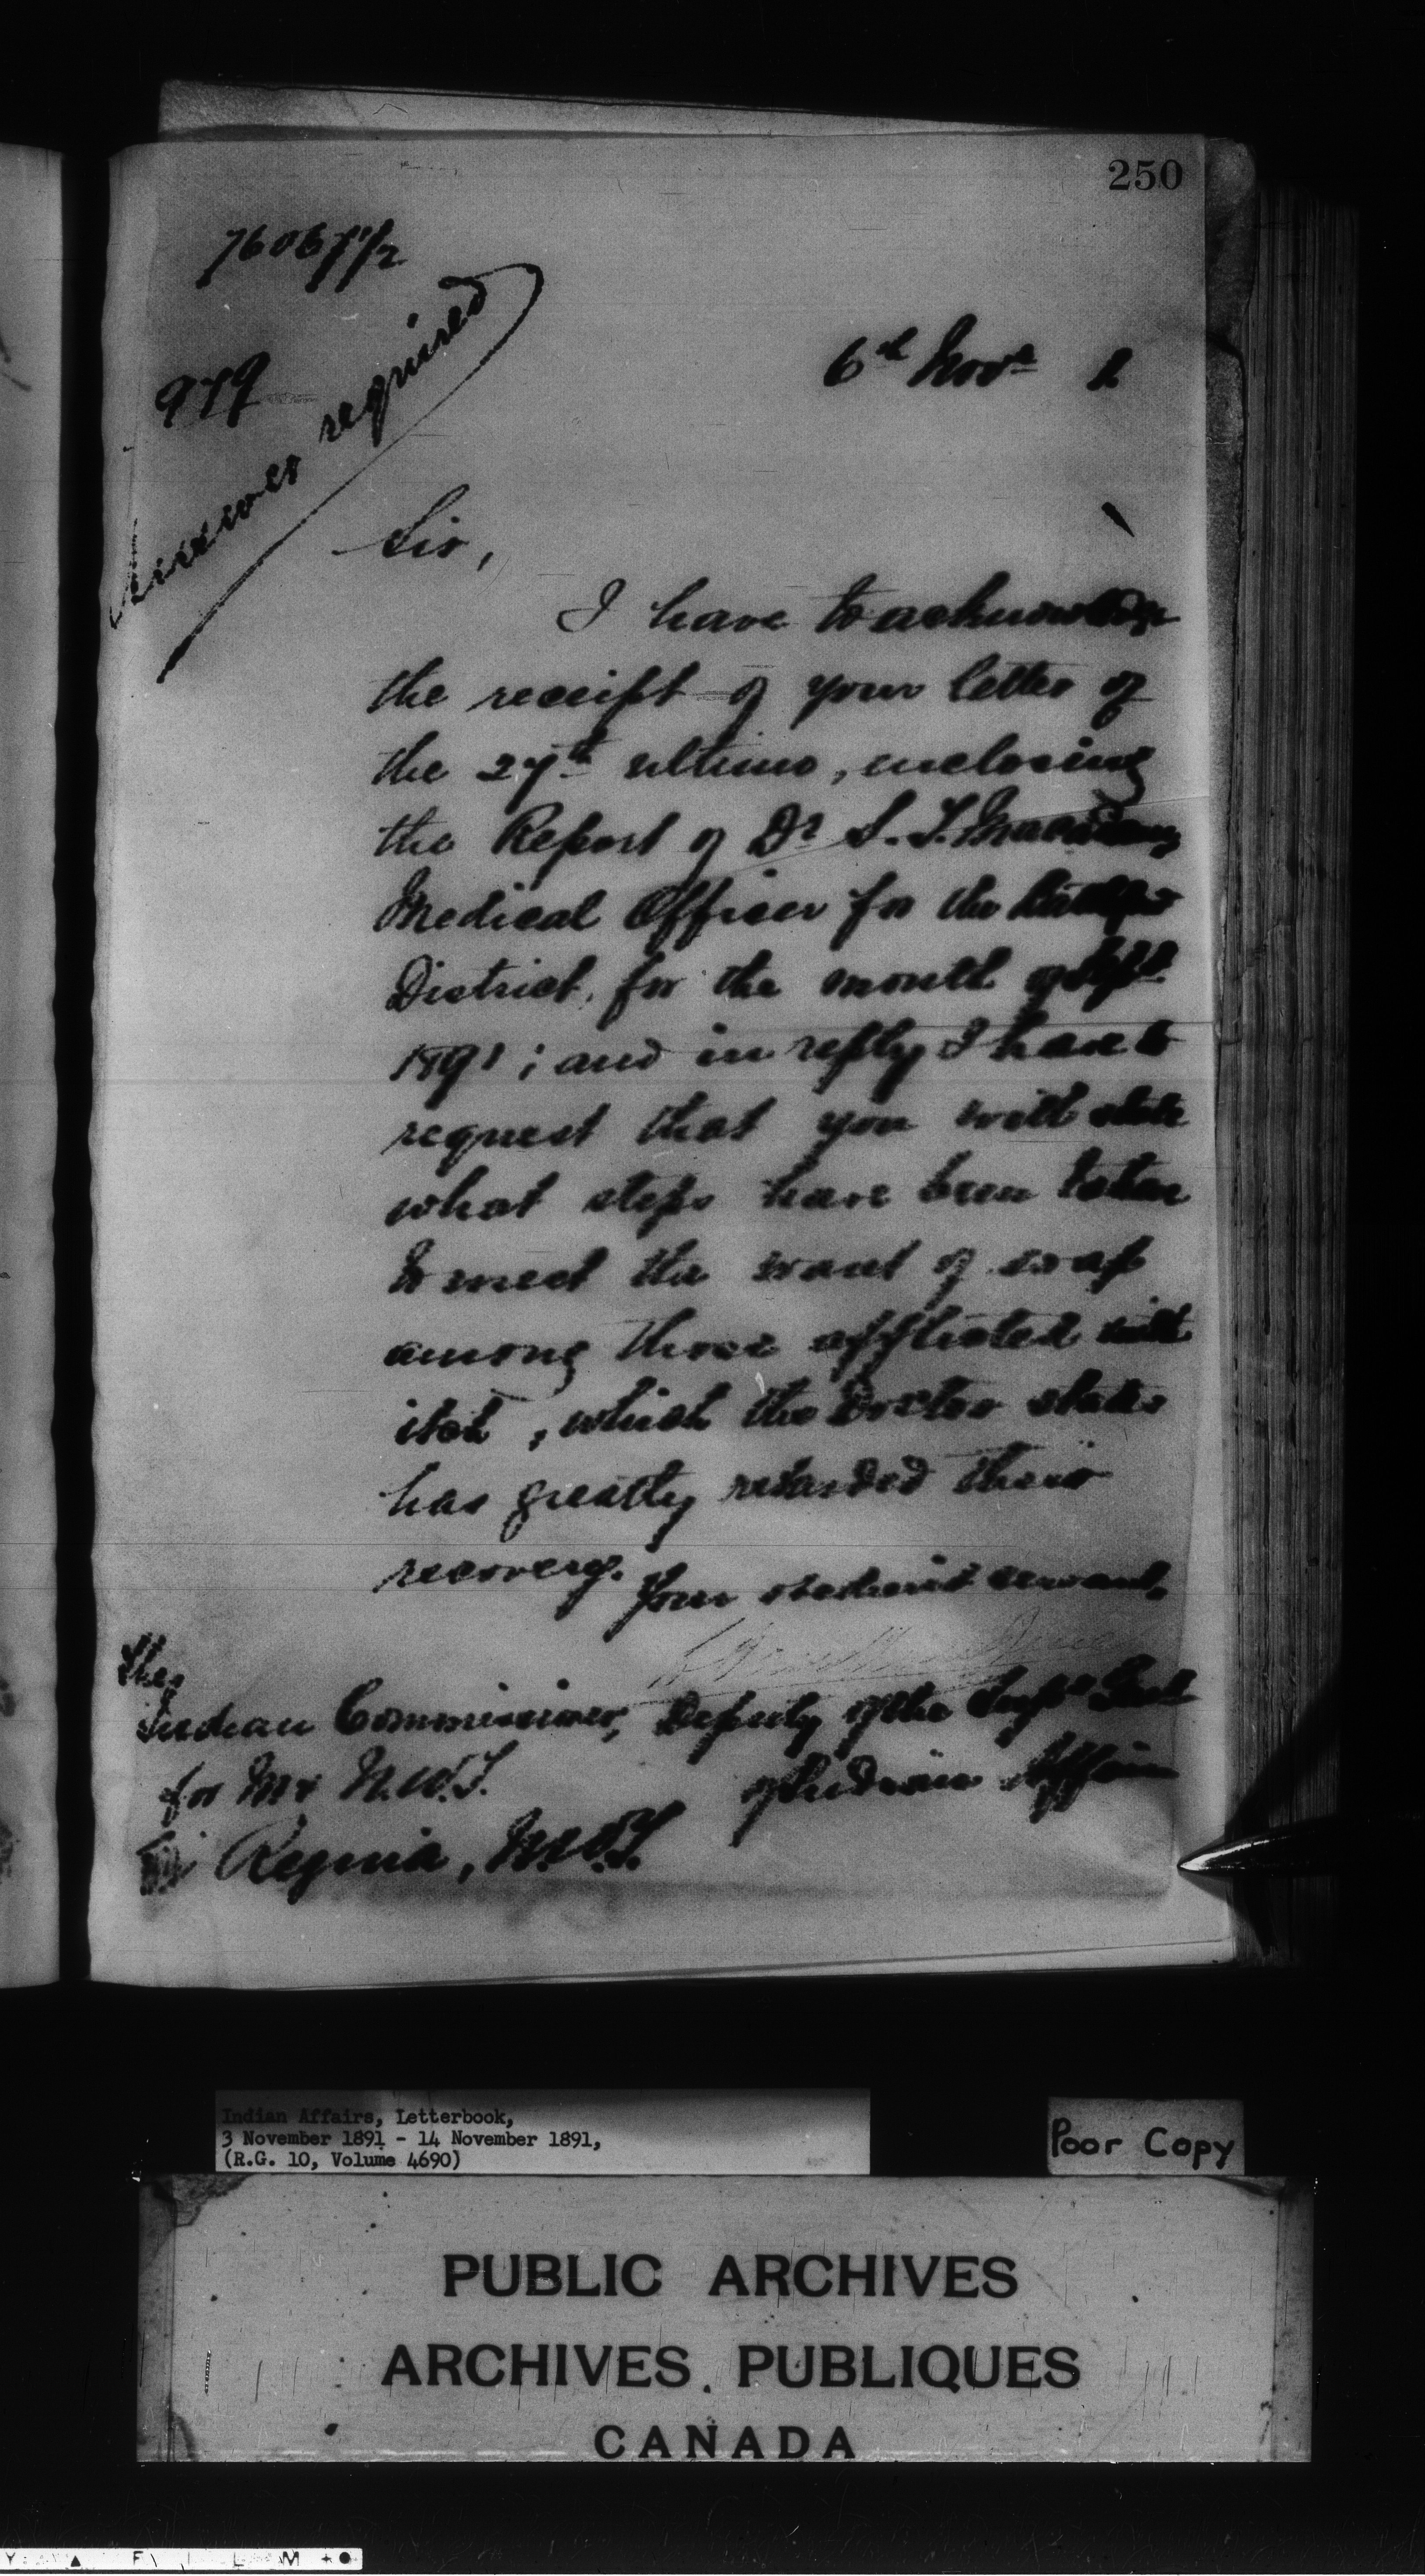 250
76067 1/2
979
Answer required
6th Novr 1
Sir,
I have to acknowledge
the receipt of your letter of
the 27th ultimo, inclosing
the Report of Dr S. T. Macadam,
Medical Officer for the Battleford
District, for the month of Septr
1891; and in reply I have to
request that you will state
what steps have been taken
to meet the want of soap
among those afflicted with
itch, which the Doctor states
has greatly retarded their
recovery.
Your obedient servant,
The
Indian Commissioner,
Deputy of the Supt Genl
for Mx N.W.T.
of Indian Affairs
Regina, N.W.T.
Indian Affairs, Letterbook,
3 November 1891 - 14 November 1891,
(R.G. 10, Volume 4690)
Poor Copy
PUBLIC ARCHIVES
ARCHIVES PUBLIQUES
CANADA